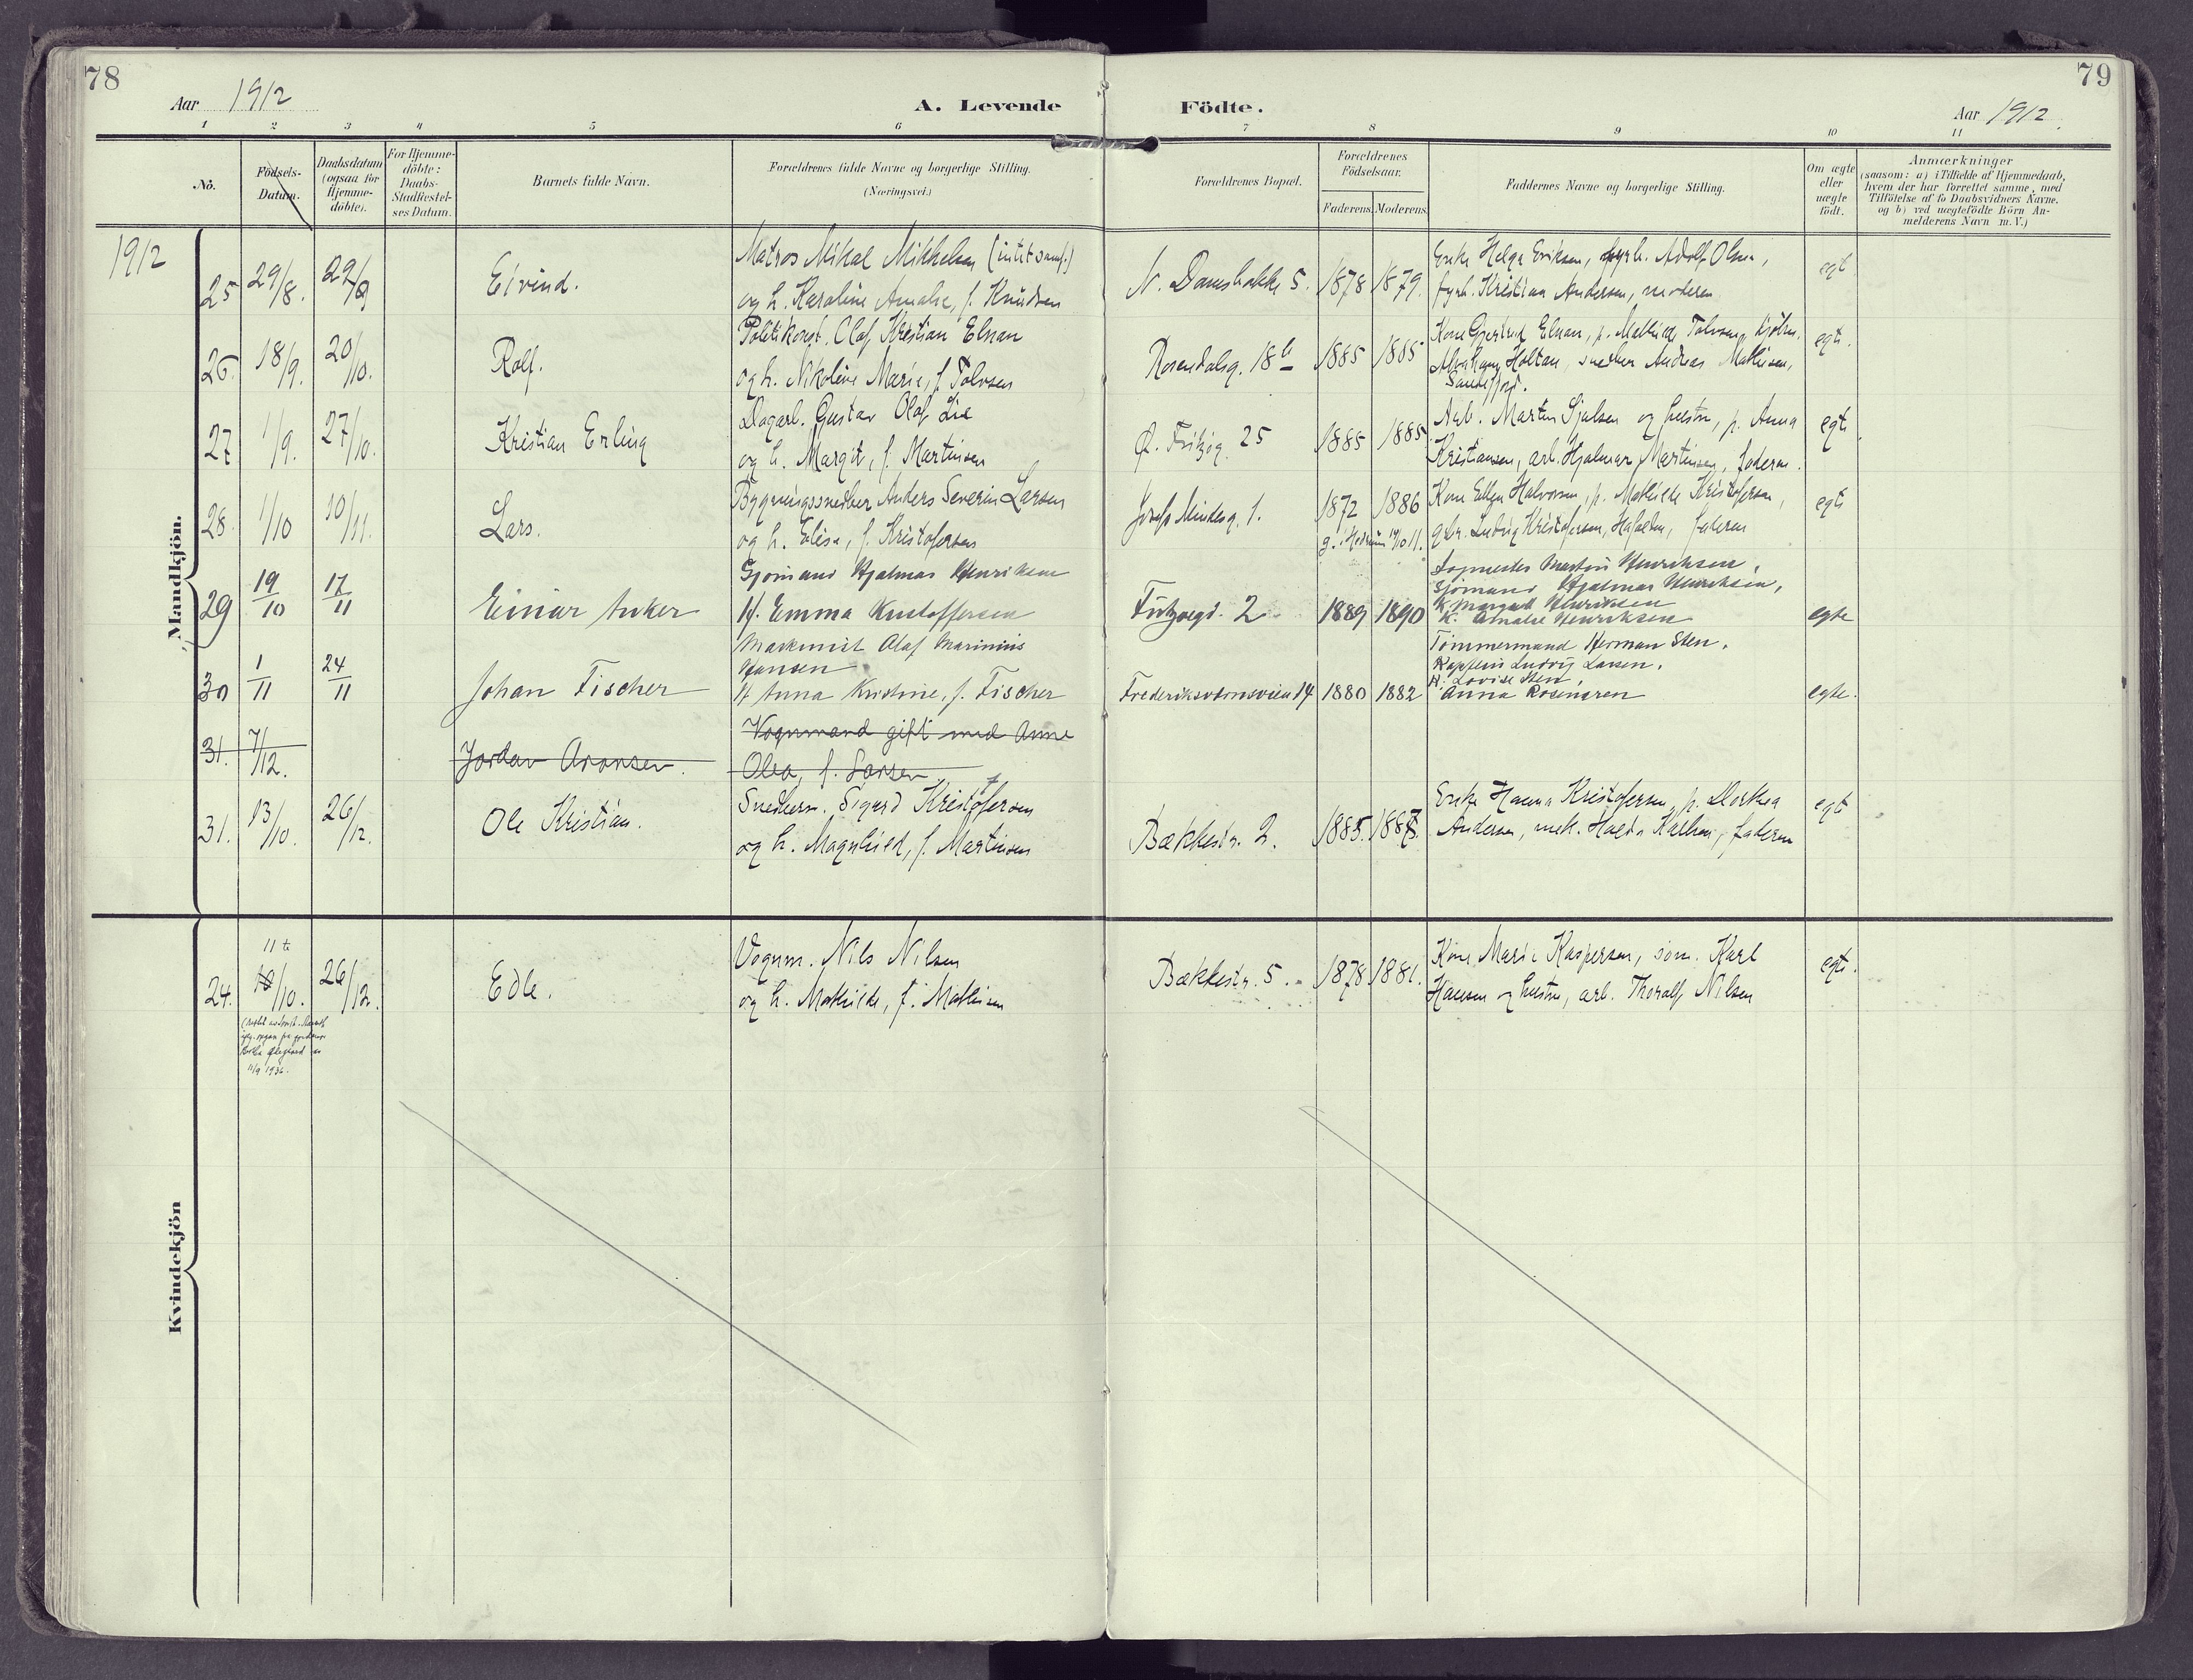 78
79
Aar 1912
A. Levende Födte.
Aar 1912.
1 2 3 4 5 6 7 8 9 10 11
No.
Födsels-
Datum.
Daabsdatum
(ogsaa for
Hjemme-
döbte).
For Hjemme-
döbte:
Daabs-
Stadfæstel-
ses Datum.
Barnets fulde Navn.
Forældrenes fulde Navne og borgerlige Stilling.
(Næringsvei.)
Forældrenes Bopæl.
Forældrenes
Födselsaar.
Faderens. Moderens.
Faddernes Navne og borgerlige Stilling.
Om ægte
eller
uægte
födt.
Anmærkninger
(saasom: a) i Tilfælde af Hjemmedaab,
hvem der har forrettet samme, med
Tilföielse af to Daabsvidners Navne.
og b) ved uægtefödte Börn An-
melderens Navn m. V.)
1912
Mandkjön.
25 29/8. 29/9 Eivind.
Matros Mikal Mikkelsen (intet samf.)
og h. Karoline Amalie, f. Knudsen
N. Damsbakke 5. 1878 1879.
Enke Helga Eriksen, fyrb. Adolf Olsen,
fyrb. Kristian Andersen, moderen
egt
26. 18/9. 20/10. Rolf.
Politikonst. Olaf Kristian Elnan
og h. Nikoline Marie, f. Tolvsen
Rosendalsg. 18b 1885 1885
Kone Gjertrud Elnan, p. Mathilde Tolvsen,
Abraham Holtan, snedker Andreas Mathisen,
Sandefjord.
egt.
27 1/9. 27/10. Kristian Erling
Dagarb. Gustav Olaf Lie
og h. Margit, f. Martinsen
Ø. Fritzøg. 25 1885 1885
Arb. Martin Sjulsen og hustru, p. Anna
Kristiansen, arb. Hjalmar Martinsen, faderen.
egt
28. 1/10 10/11. Lars.
Bygningssnedker Anders Severin Larsen
og h. Elise, f. Kristofersen
Josefs Mindesg. 1. 1872 1886
Kone Ellen Halvorsen, p. Mathilde Kristofersen,
gbr. Ludvig Kristofersen, faderen
egt
29 19/10 17/11 Einar Anker
Sjømand Hjalmar Henriksen
H. Emma Kristoffersen
Fritzøegd. 2 1889 1890
Logmester Martin Henriksen,
Sjømand Hjalmar Henriksen,
K. Margit Henriksen
K. Amalie Henriksen
egte
30 1/11 24/11 Johan Fischer
Maskinist Olaf Marinius
Hansen
H Anna Kristine, f. Fischer
Frederiksværnsveien 14 1880 1882
Tømmermand Herman Sten.
Kaptein Ludvig Larsen.
H. Lovise Sten,
Anna Rosengren
egte.
31. 7/12. Jordan Aronsen.
Vognmand gift med Anne
Olea, f. Larsen
31. 13/10. 26/12. Ole Kristian.
Snedkerm. Sigurd Kristofersen
og h. Magnhild, f. Martinsen
Bækkestr. 2. 1885. 1887.
Enke Hanna Kristofersen, p. Dorthea
Andersen, mek. faderen
egt
Kvindekjön
11te
24. 10/10. 26/12. Edle.
Vognm. Nils Nilsen
og h. Mathilde, f. Mathisen
Bækkestr. 5. 1878 1881.
Kone Marie Kaspersen, søm. Karl
Hansen og hustru, arb. Thoralf Nilsen
egt.